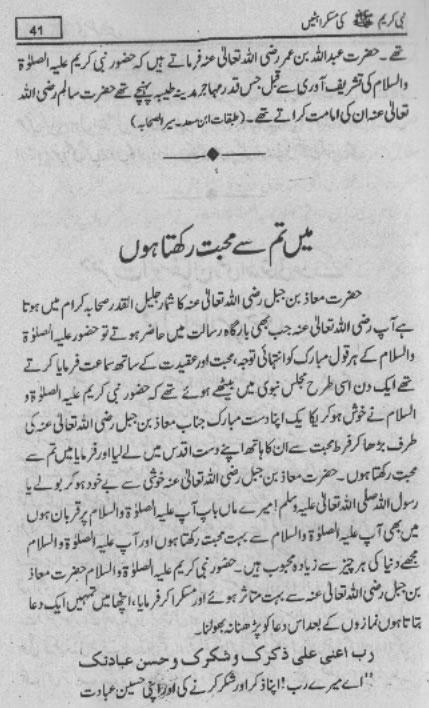 نبی کریم ﷺ کی مسکراہٹیں
41
تھے۔ حضرت عبداللہ بن عمر رضی اللہ تعالیٰ عنہ فرماتے ہیں کہ حضور نبی کریم علیہ الصلوٰۃ
والسلام کی تشریف آوری سے قبل جس قدر مہاجر مدینہ طیبہ پہنچے تھے حضرت سالم رضی اللہ
تعالیٰ عنہ ان کی امامت کراتے تھے۔ (طبقات ابن سعد۔ سیر الصحابہ)
میں تم سے محبت رکھتا ہوں
حضرت معاذ بن جبل رضی اللہ تعالیٰ عنہ کا شمار جلیل القدر صحابہ کرام میں ہوتا
ہے آپ رضی اللہ تعالیٰ عنہ جب بھی بارگاہ رسالت میں حاضر ہوتے تو حضور علیہ الصلوٰۃ
والسلام کے ہر قول مبارک کو انتہائی توجہ محبت اور عقیدت کے ساتھ سماعت فرمایا کرتے
تھے ایک دن اسی طرح مجلس نبوی میں بیٹھے ہوئے تھے کہ حضور نبی کریم علیہ الصلوٰۃ و
السلام نے خوش ہو کر یکایک اپنا دست مبارک جناب معاذ بن جبل رضی اللہ تعالیٰ عنہ کی
طرف بڑھا کر فرط محبت سے ان کا ہاتھ اپنے دست اقدس میں لے لیا اور فرمایا میں تم سے
محبت رکھتا ہوں۔ حضرت معاذ بن جبل رضی اللہ تعالیٰ عنہ خوشی سے بے خود ہو کر بولے یا
رسول اللہ صلی اللہ تعالیٰ علیہ وسلم! میرے ماں باپ آپ علیہ الصلوٰۃ والسلام پر قربان ہوں
میں بھی آپ علیہ الصلوٰۃ والسلام سے بہت محبت رکھتا ہوں اور آپ علیہ الصلوٰۃ والسلام
مجھے دنیا کی ہر چیز سے زیادہ محبوب ہیں۔ حضور نبی کریم علیہ الصلوٰۃ والسلام حضرت معاذ
بن جبل رضی اللہ تعالیٰ عنہ سے بہت متاثر ہوئے اور مسکرا کر فرمایا، اچھا میں تمہیں ایک دعا
بتاتا ہوں نمازوں کے بعد اس دعا کو پڑھنا نہ بھولنا۔
رب اعنی علی ذکرک و شکرک و حسن عبادتک
"اے میرے رب! اپنا ذکر اور شکر کرنے کی اور اپنی حسین عبادت